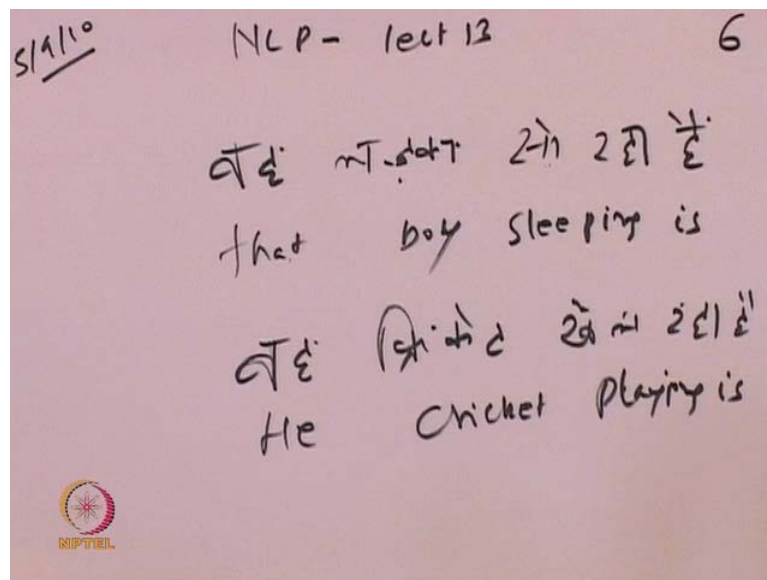 5/9/10 NLP - lect 13 6
वह लड़का सो रहा है
that boy sleeping is
वह क्रिकेट खेल रहा है
He Cricket Playing is
NPTEL